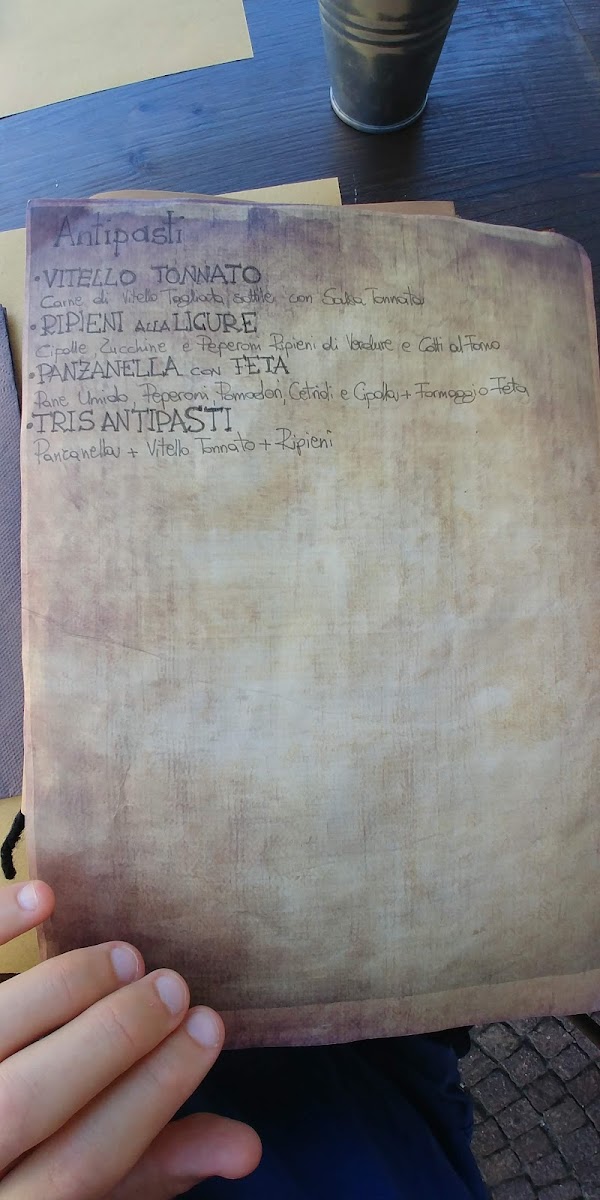 Antipasti
• VITELLO TONNATO
Carne di Vitello Tagliata sottile, con Salsa Tonnata
• RIPIENI ALLA LIGURE
Cipolle, Zucchine e Peperoni Ripieni di Verdure e Cotti al Forno
• PANZANELLA CON FETA
Pane Umido, Peperoni, Pomodori, Cetrioli e Cipolla + Formaggio Feta
• TRIS ANTIPASTI
Panzanella + Vitello Tonnato + Ripieni